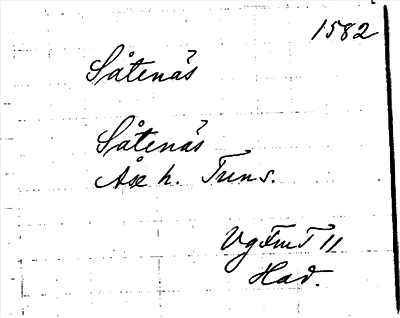 1582
Såtenäs
Såtenäs
Åse h. Tuns.
VgFmT 11
Had.